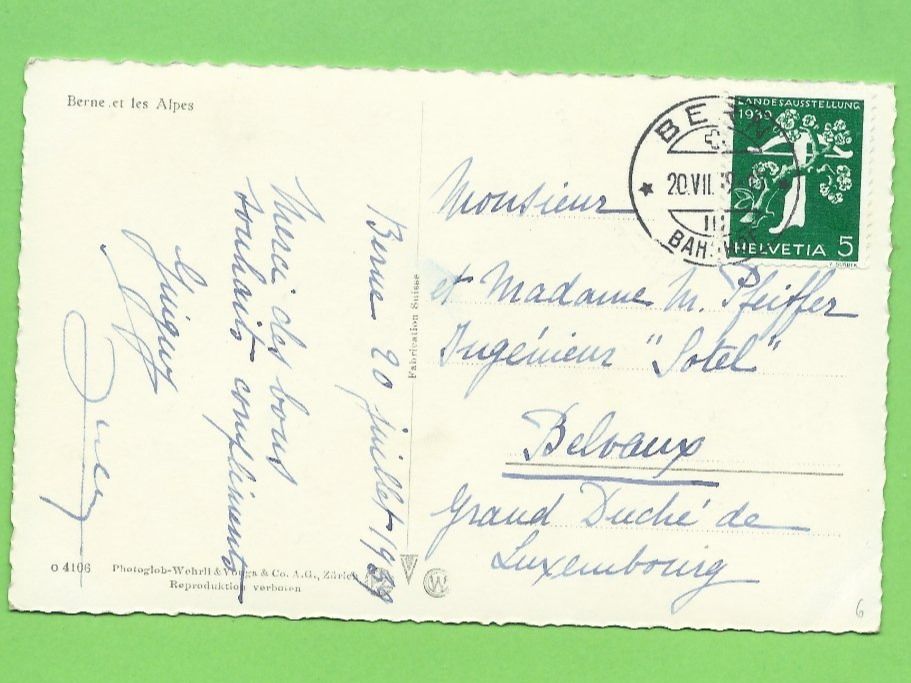 Berne et les Alpes
Berne 20 juillet 1939
Merci des bons
souhaits compliments
Guigus
Fabrication Suisse
o 4106
Photoglob-Wehrli & Vouga & Co. A.G., Zürich
Reproduktion verboten
W
BERN
20.VII.39
III
BAHNHOF
LANDESAUSSTELLUNG
1939
HELVETIA 5
Monsieur
et Madame M. Pfeiffer
Ingénieur "Sotel"
Belvaux
Grand Duché de
Luxembourg
6